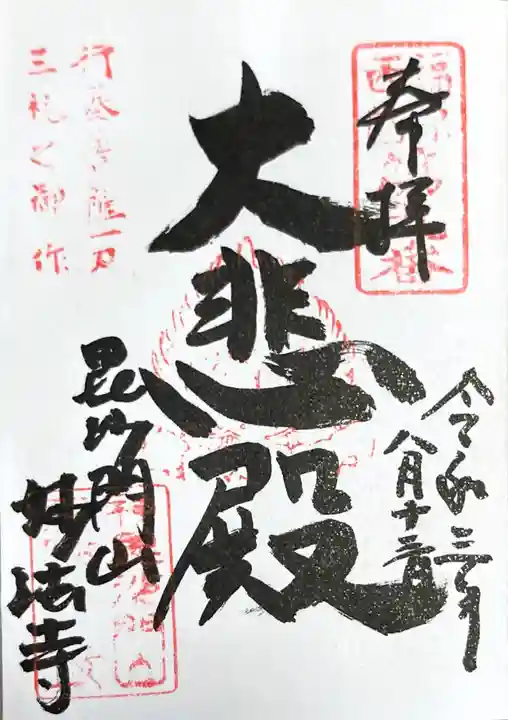 奉拝
令和三年
八月十二日
大悲殿
毘沙門山
妙法寺
行基菩薩一刀
三礼之御作